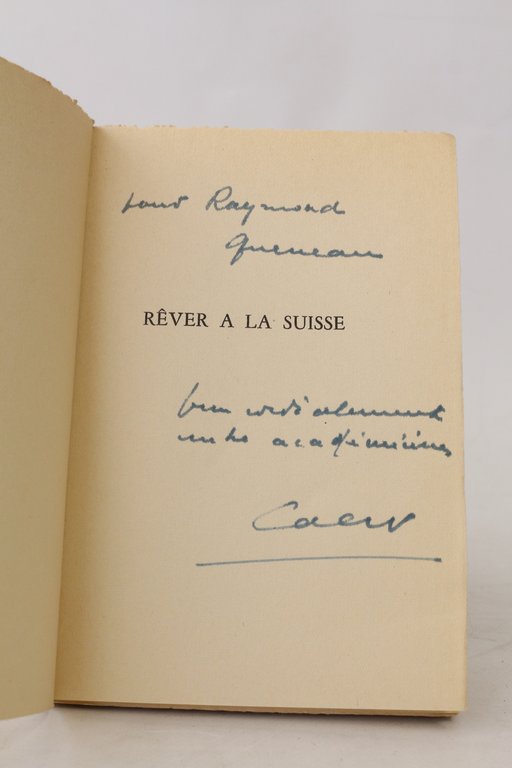 pour Raymond
Queneau
RÊVER A LA SUISSE
bien cordialement
entre académiciens
Calet